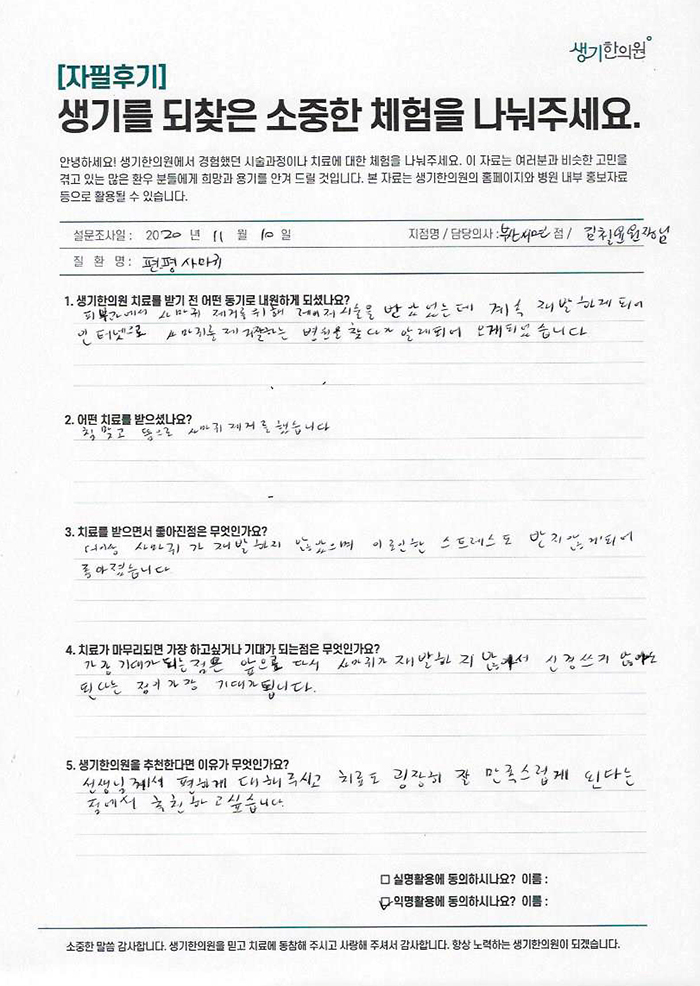 생기한의원
[자필후기]
생기를 되찾은 소중한 체험을 나눠주세요.
안녕하세요! 생기한의원에서 경험했던 시술과정이나 치료에 대한 체험을 나눠주세요. 이 자료는 여러분과 비슷한 고민을
겪고 있는 많은 환우 분들에게 희망과 용기를 안겨 드릴 것입니다. 본 자료는 생기한의원의 홈페이지와 병원 내부 홍보자료
등으로 활용될 수 있습니다.
설문조사일 : 2020 년 11 월 10 일 지점명 / 담당의사 : 부산서면 점 / 원장님
질 환 명 : 편평사마귀
1. 생기한의원 치료를 받기 전 어떤 동기로 내원하게 되셨나요?
피부과에서 사마귀 제거를 위해 레이저시술을 받았었는데 계속 재발하게되어
인터넷으로 사마귀를 제거잘하는 병원을 찾다가 알게되어 오게되었습니다
2. 어떤 치료를 받으셨나요?
침맞고 뜸으로 사마귀제거를했습니다
3. 치료를 받으면서 좋아진점은 무엇인가요?
더이상 사마귀가 재발하지 않았으며 이로인한 스트레스도 받지않게되어
좋아졌습니다
4. 치료가 마무리되면 가장 하고싶거나 기대가 되는점은 무엇인가요?
가장기대가되는점은 앞으로 다시 사마귀가 재발하지않아서 신경쓰지 않아도
된다는 점이가장 기대가됩니다.
5. 생기한의원을 추천한다면 이유가 무엇인가요?
선생님께서 편하게 대해주시고 치료도 굉장히 잘 만족스럽게 된다는
점에서 추천하고싶습니다.
□ 실명활용에 동의하시나요? 이름 :
☑ 익명활용에 동의하시나요? 이름 :
소중한 말씀 감사합니다. 생기한의원을 믿고 치료에 동참해 주시고 사랑해 주셔서 감사합니다. 항상 노력하는 생기한의원이 되겠습니다.